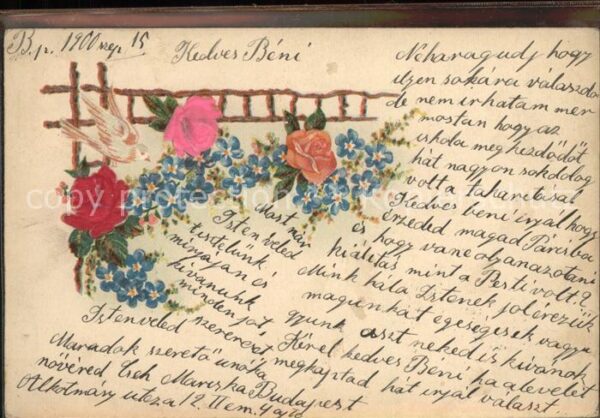 B.p. 1900 szep 15
Kedves Béni
Neharagudj hogy
ilyen sokára válaszolo
de nem irhatam mer
mostan hogy az
iskola megkezdődőt
hát nagyon sok dolog
volt a takaritásal
Kedves beni irjál hogy
érzeded magad Párisba
és hogy van e olyan az otani
kiálitás mint a Pesti volt?
Mink hála Istenek jol érezük
magunkat egeségesek vagyu
gyunk aszt neked is kivánok
Kérel kedves Béni ha a levelet
megkaptad hát irjál választ.
Most már
Isten veled
tisdelünk
mindnyajan és
kivanunk
minden jót
Isten veled szereret
Maradok szerető unoka
növéred Cseh Mariska Budapest
Alkotmány utcza 12. II em. 4 ajtó
copy protection